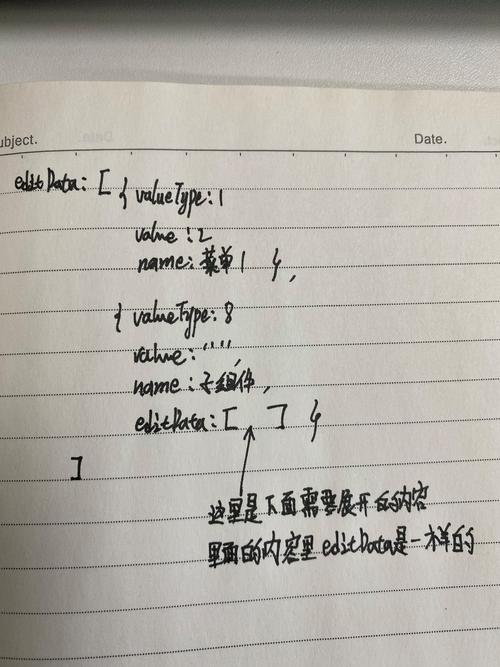 ubject.
Date.
editData: [ { valueType: 1
value : 2
name: 菜单1 },
{ valueType: 8
value: "",
name : 子组件,
editData: [ ] }
]
这里是下面需要展开的内容
里面的内容里editData是一样的